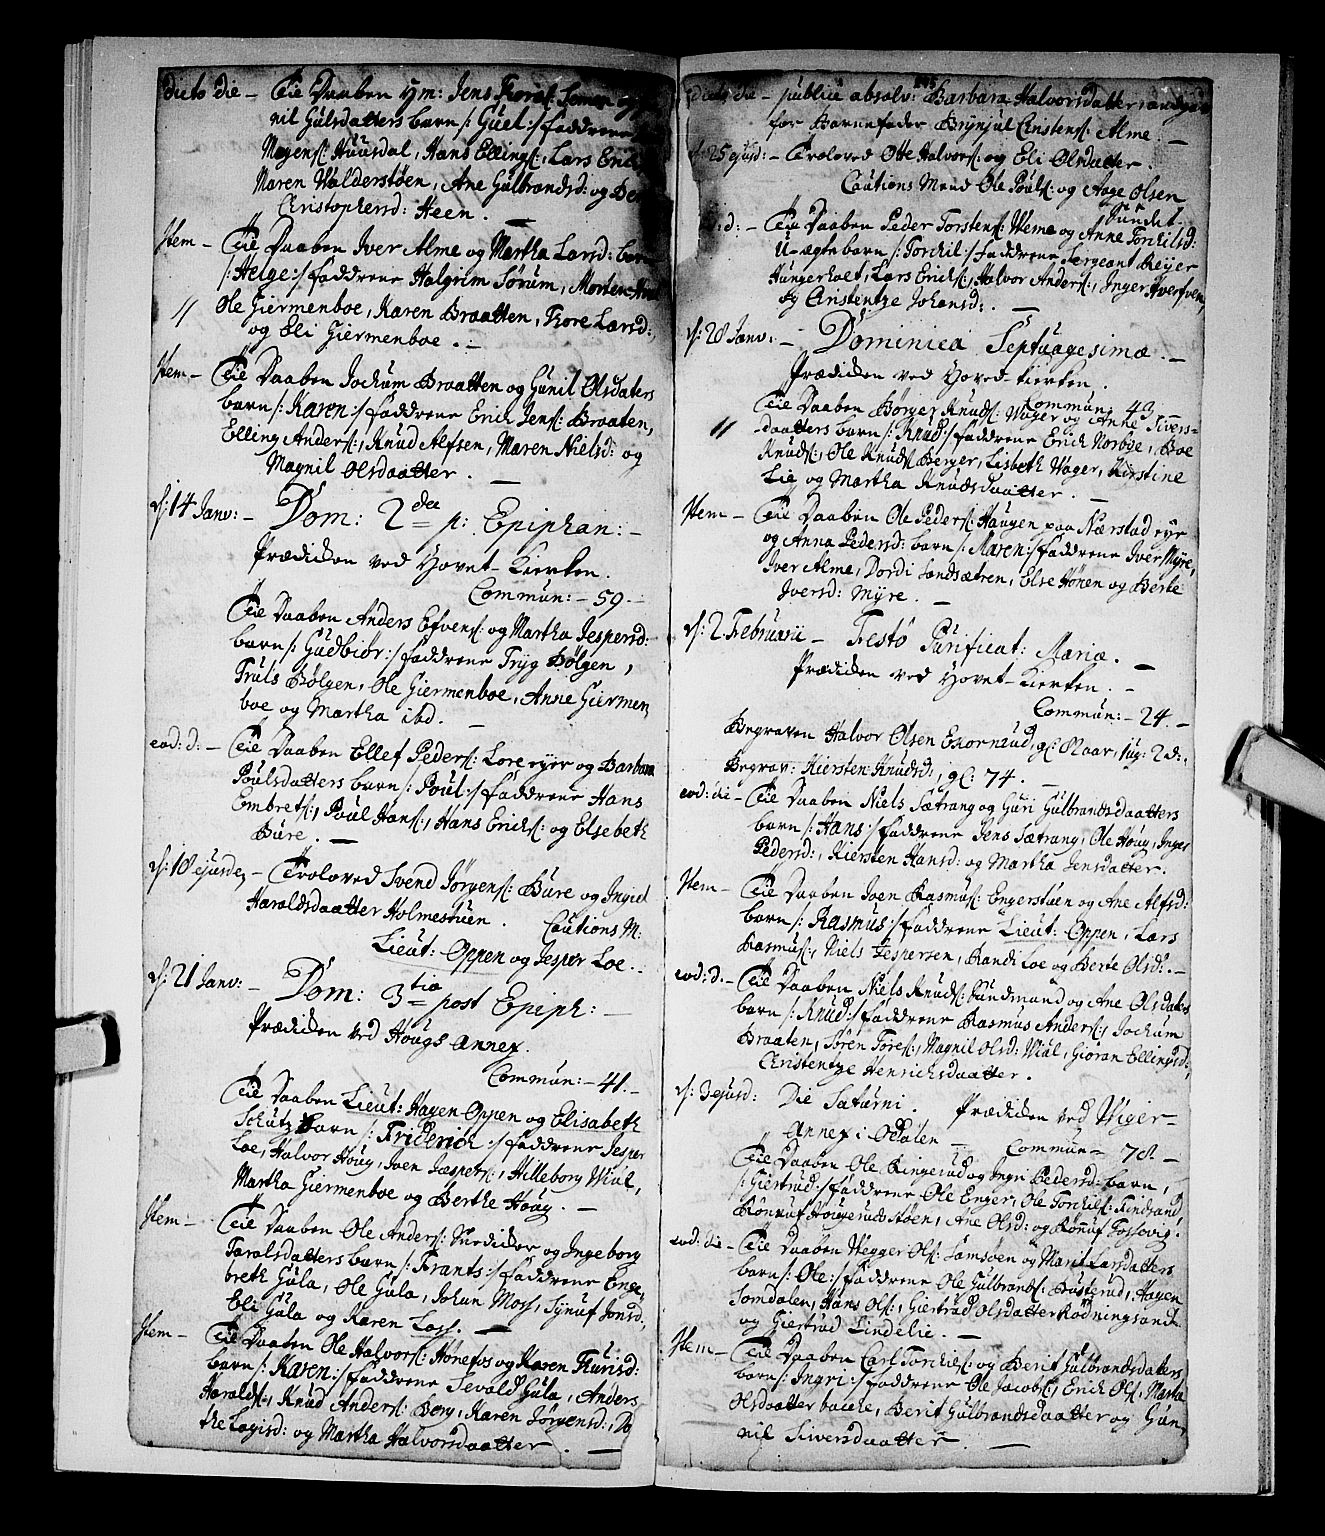 dicto die – Til Daaben
nil Gulsdatters barn /: Guel :/ faddrene
Mogens: Huusdal, Hans Ellings:, Lars
Maren Walderstøen, Ane Gulbrandsd: og
Christophersd: Heen.
Item – Til Daaben Iver Alme og Martha Larsd: barn
/: Helge :/ faddrene Halgrim Sørum, Morten
Ole Giermenboe, Karen Braatten, Thore Larsd:,
og Eli Giermenboe. –
Item – Til Daaben Jochum Braatten og Gunil Olsdaters
barn /: Karen :/ faddrene Erich Jens: Braaten,
Elling Anders:, Knud Alfsen, Maren Nielsd: og
Magnil Olsdaatter. –
d: 14 Janv: – Dom: 2 dca p: Epiphan: –
Prædiken ved Hovet-Kierken.
Commun: – 59 –
Til Daaben Anders Efvens: og Martha Jespersd:
barn /: Gudbiør :/ faddrene Tryg Bølgen,
Truls Bølgen, Ole Giermenboe, Anne Giermen
boe og Martha ibd. –
eod: d: – Til Daaben Ellef Peders: Lore eyer og Barbara
Poulsdatters barn /: Poul :/ faddrene Hans
Embrets:, Poul Hans:, Hans Erichs: og Elsebeth
Bure. –
d: 18 ejusd: – Troloved Svend Jørgens: Bure og Ingied
Haroldsdaatter Holmestuen. Cautions M:
Lieut: Oppen og Jesper Loe.
d: 21 Janv: – Dom: 3 tia post Epiph: –
Prædiken ved Hougs Annex.
Commun: – 41. –
Til Daaben Lieut: Hagen Oppen og Elisabeth
Schutz barn /: Friderich :/ faddrene Jesper
Loe, Halvor Houg, Joen Jæspers:, Hilleborg Wiul,
Martha Giermenboe og Berthe Houg. –
Item – Til Daaben Ole Anders: og Ingeborg
Taralsdatters barn /: Frants :/ faddrene Enge,
breth Gula, Ole Gula, Johan Moss, Synuf Jonsd:,
Eli Gula og Karen Loss. –
Item – Til Daaben Ole Halvors: Hønefos og Karen Thurisd:
barn /: Karen :/ faddrene Sevald Gula, Anders
Haralds:, Knud Anders: Berg, Karen Jørgensd:,
og Martha Halvorsdaatter. –
dicto die – publice absolv: Barbara Halvorsdatter
for Barnefader Brynjul Christens: Alme. –
d: 25 ejusd: – Troloved Otte Halvors: og Eli Olsdatter.
Cautions Mend Ole Pouls: og Aage Olsen
Sundet.
eod: d: – Til Daaben Peder Torstens: Weme og Anne Torchilsd:
U-ægte barn /: Torchil :/ faddrene Sergeant Reyer
Hungerholt, Lars Erichs:, Halvor Anders:, Inger Averfven,
og Christentze Johansd: –
d: 28 Janv: – Dominica Septuagesimæ. –
Prædiken ved Hoved-kierken.
Commun: 43 –
Til Daaben Børger Knuds: Wager og Anne Sivers-
daatters barn /: Knud :/ faddrene Erich Norbye, Boe
Knuds:, Ole Knuds: Berger, Lisbeth Wager, Kirstine
Lie og Martha Knudsdaatter. –
Item – Til Daaben Ole Peders: Haugen paa Nærstad eye
og Anna Pedersd: barn /: Maren :/ faddrene Iver Myre,
Iver Alme, Dordi Sandsætren, Else Hønen og Berte
Iversd: Myre. –
d: 2. Februarii – Festo Purificat: Mariæ. –
Prædiken ved Hovet-Kierken. –
Commun: – 24. –
Begraven Halvor Olsen Ekornrud, gl: 82 aar, 1 ug: 2 d:,
Begrav: Kiersten Knudsd:, gl: 74. –
eod: die – Til Daaben Niels Sætrang og Guri Gulbrandsdaatters
barn /: Hans :/ faddrene Jens Sætrang, Ole Houg, Inger
Pedersd:, Kiersten Hansd: og Martha Jensdatter.
Item – Til Daaben Joen Rasmus: Engerstuen og Ane Alfsd:
barn /: Rasmus :/ faddrene Lieut: Oppen, Lars
Rasmus:, Niels Jespersen, Randi Loe og Berte Olsd: –
eod: d. – Til Daaben Niels Knuds: og Ane Olsdaters
barn /: Knud :/ faddrene Rasmus Anders:, Jochum
Braaten, Søren Tores:, Magnil Olsd: Wiul, Gioran Ellingsd:,
Christentze Henrichsdaatter.
d: 3 ejusd: Die Saturni. Prædiken ved Wiger-
Annex i Odalen – Commun – 78. –
Til Daaben Ole Ringerud og Ingri Pedersd: barn,
/: Giertrud :/ faddrene Ole Enger, Ole Torchils: Findsand,
Rønnuf Hougeruds Møen, Ane Olsd: og Rønnuf Fossovig.
eod: die – Til Daaben Wegger Ols: Samsøen og Marit Larsdatters
barn /: Ole :/ faddrene Ole Gulbrands: Busterud, Hagen
Somdalen, Hans Ols:, Giertrud Olsdatter Rødningsand
og Giertrud Lindelie. –
Item – Til Daaben Carl Torchils: og Berit Gulbrandsdaters
barn /: Ingri :/ faddrene Ole Jacobs:, Erich Ols:, Marta
Olsdaatter backe, Berit Gulbrandsdaatter og Gun,
nil Siversdaatter. –